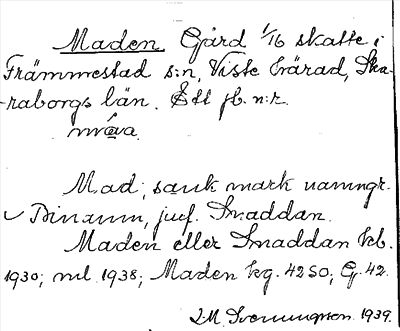 Maden. Gård 1/16 skatte i
Främmestad s:n, Viste härad, Ska-
raborgs län. Ett fb. n:r.
Mad, sank mark namngr.
Binamn, jmf. Smaddan.
Maden eller Smaddan kb.
1930; ml. 1938; Maden kg. 42 SO; G. 42.
1939.